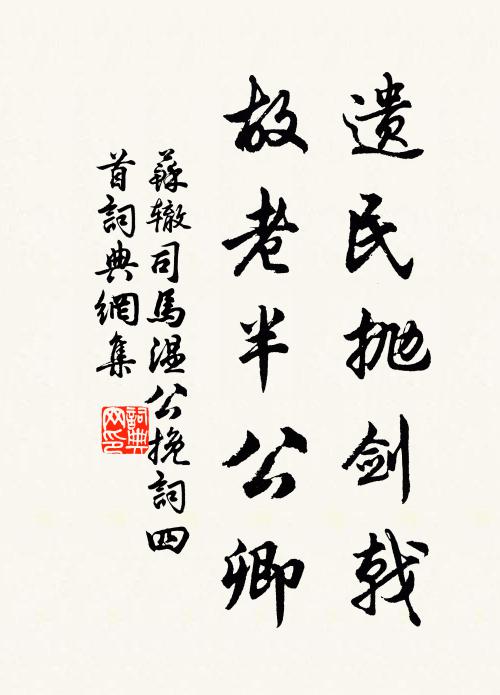 遗民抛剑戟
故老半公卿
蘇辙司馬温公挽詞四
首詞典網集
詞典
网印